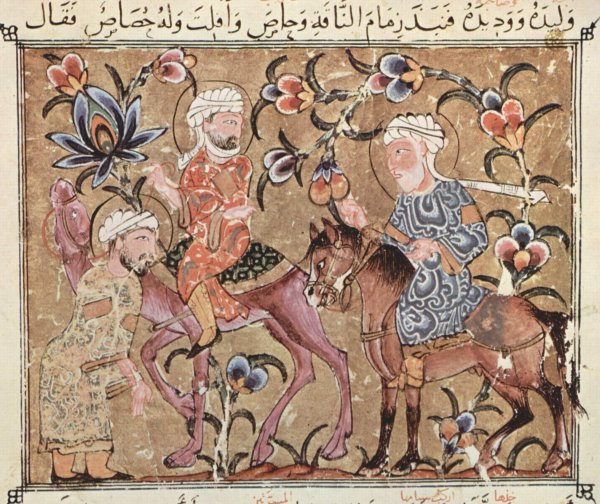 وَلِيدَهُ وَوَدِيدَهُ فَنَبَذَ زِمَامَ النَّاقَةِ وَحَاصَ وَافلَتَ وَلَهُ حُصَاصٌ فَقَال